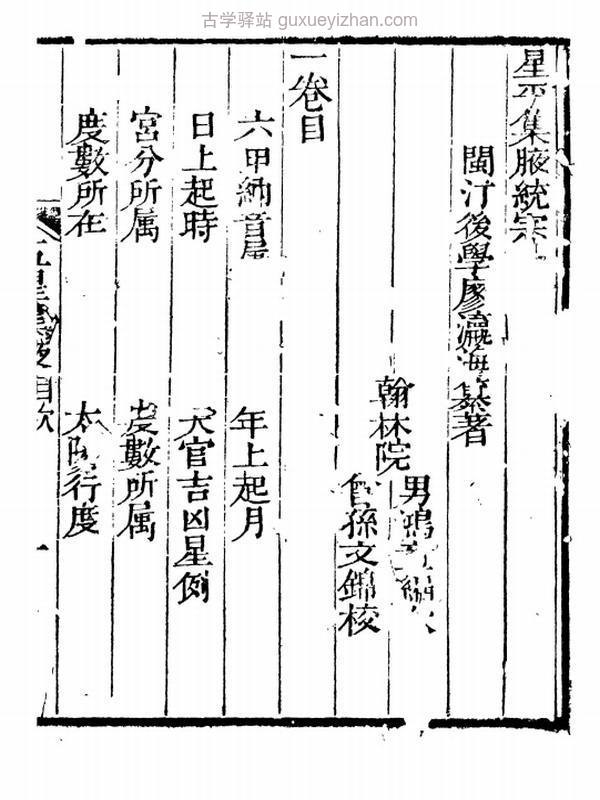 古学驿站 guxueyizhan.com
星平集腋統宗
閩汀後學廖瀛海纂著
翰林院
男鴻
曾孫文錦校
一卷目
六甲納音屬
年上起月
日上起時
天官吉凶星例
宮分所属
度數所属
度數所在
太陽行度
目次
一